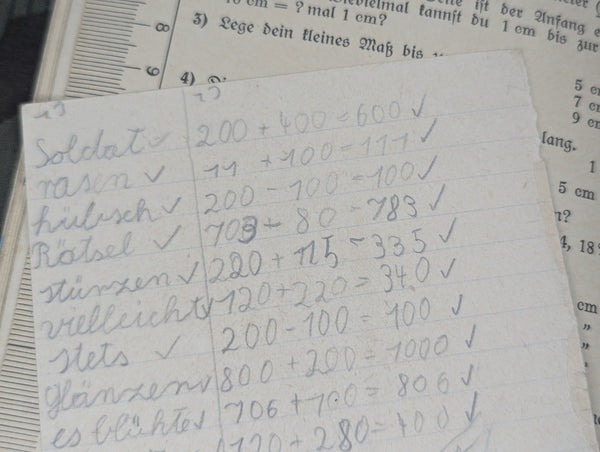 = ? mal 1 cm?
3) Lege dein kleines Maß bis
kannst du 1 cm bis zur
ist der Anfang
4)
8
9
5 cm
7 cm
9 cm
lang.
1
5 cm
n?
4, 18
cm
"
"
Soldat ✓ 200 + 400 = 600 ✓
rasen ✓ 11 + 100 = 111 ✓
hübsch ✓ 200 - 100 = 100 ✓
Rätsel ✓ 703 + 80 = 783 ✓
stürzen ✓ 220 + 115 = 335 ✓
vielleicht ✓ 120 + 220 = 340 ✓
stets ✓ 200 - 100 = 100 ✓
glänzen ✓ 800 + 200 = 1000 ✓
es blühte ✓ 706 + 100 = 806 ✓
120 + 280 = 400 ✓